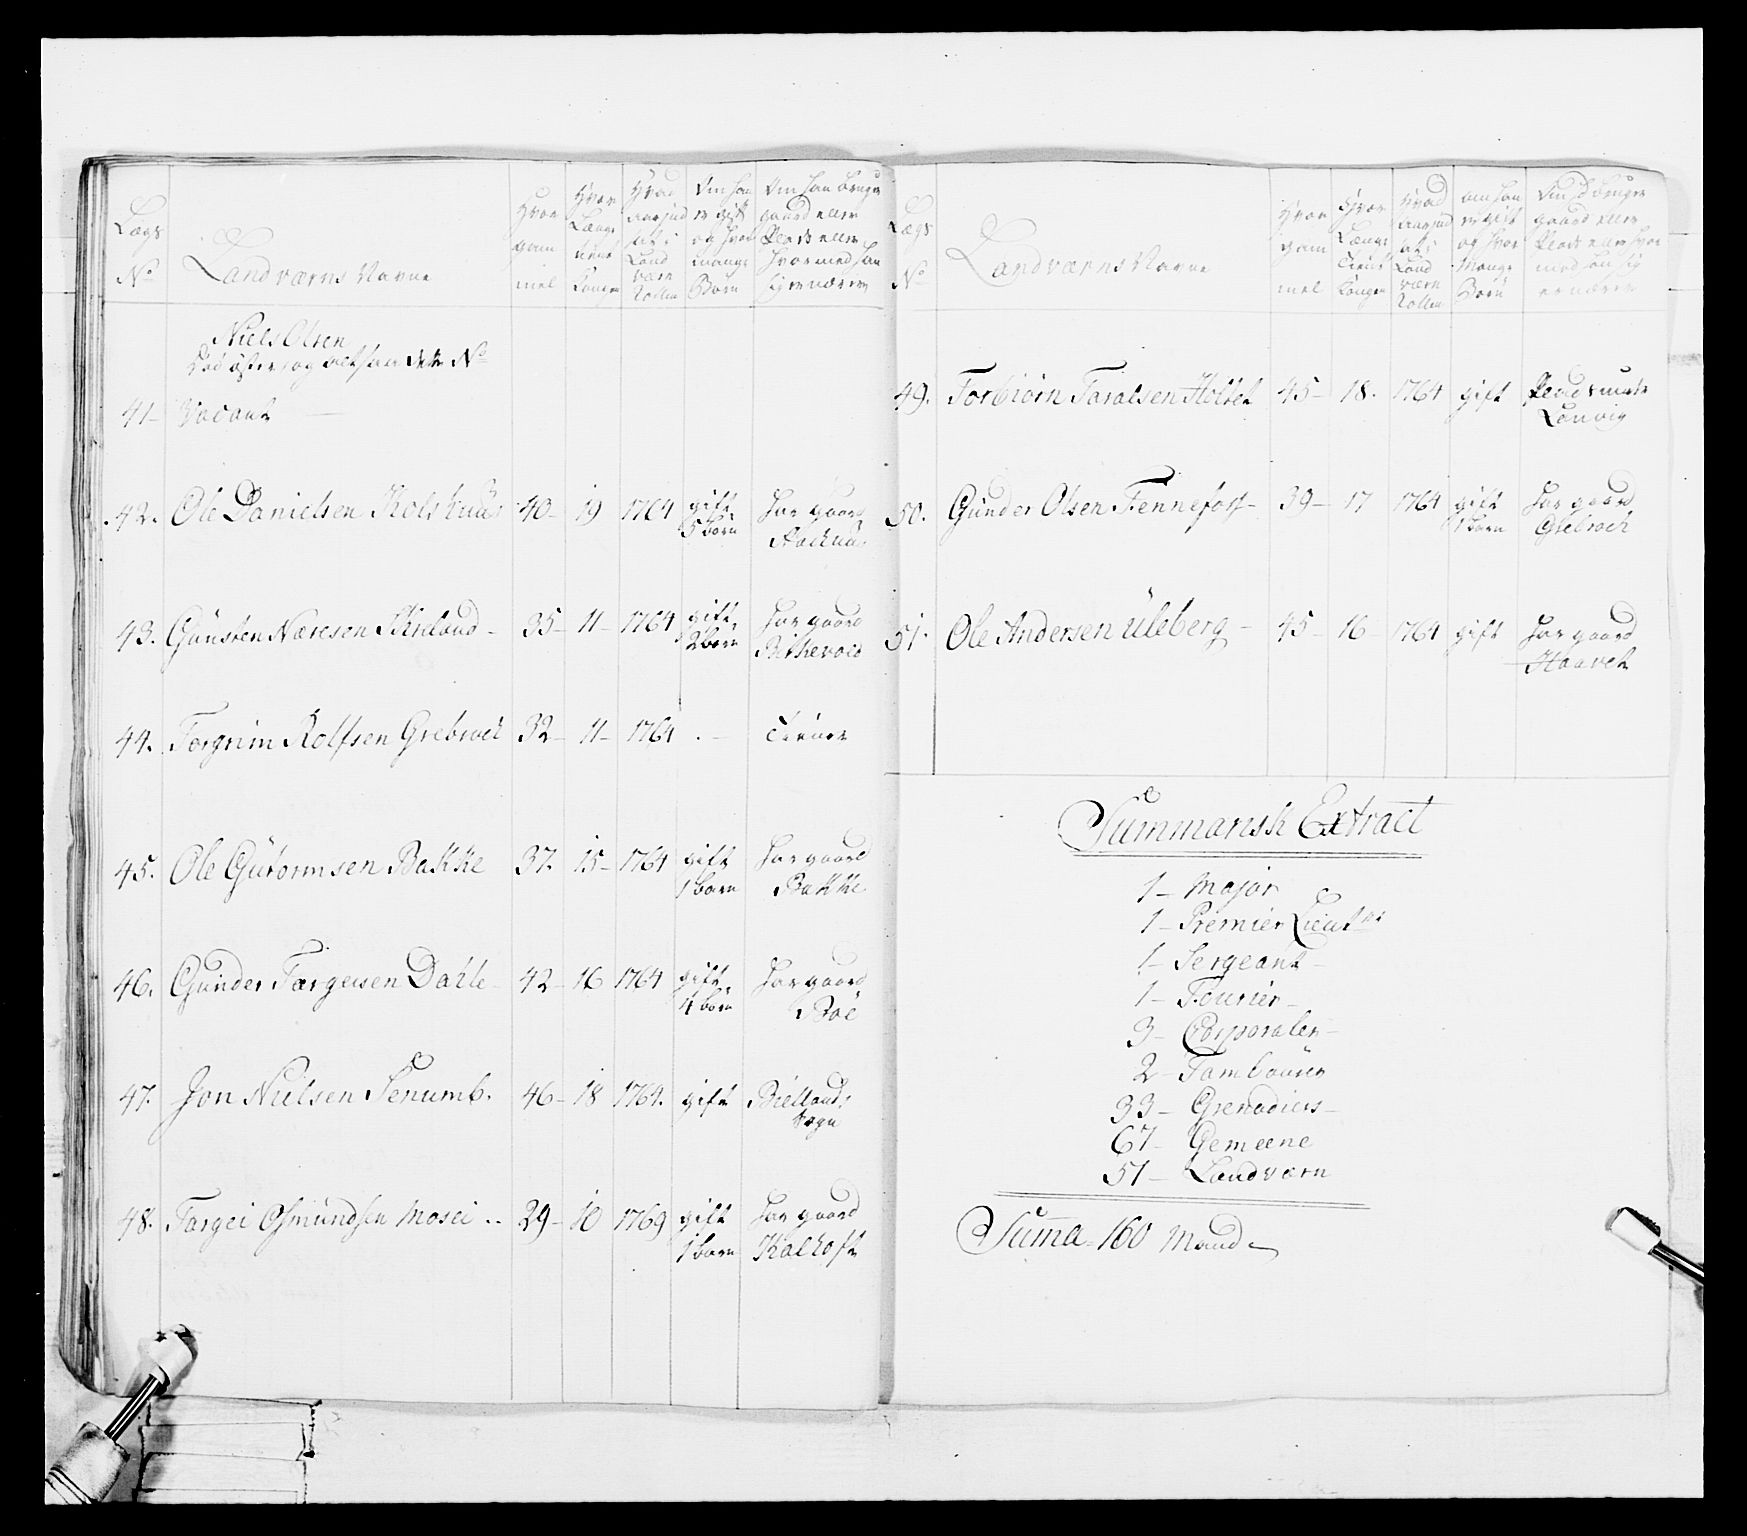 Lægs
No
Landværns Navne
Hvor
gam
mel
Hvor
Længe
tient
Kongen
Hvad
Aar ind
sat i
Land
værn
Rollen
Om han
er gift
og hvor
mange
Børn
Om han bruger
gaard eller
Plads eller
hvormed han
sig ernærer
Niels Olsen
død og altsaa dette No
41- Vacant
42. Ole Danielsen 40- 19 1764 gift 5 børn har gaard
43. Gunsten Næresen Skreland- 35- 11- 1764 gift 2 børn har gaard Birkevold
44. Torgrim Rolfsen Grebrock 32- 11- 1764 . - Tiener
45. Ole Gutormsen Bakke 37. 15- 1764 gift 1 barn har gaard Bakke
46. Gunder Targeisen Dahle- 42- 16 1764 gift 4 børn har gaard Böe
47. Jon Nielsen Senumb. 46- 18 1764. gift Biellands Sogn
48. Targei Osmundsen Mosei .. 29- 10 1769 gift 1 barn har gaard Kalhoft
Lægs
No
Landværns Navne
Hvor
gam
mel
Hvor
Længe
Tient
Kongen
Hvad
Aar ind
sat i
Land
værn
Rollen
om han
er gift
og hvor
Mange
Børn
Om h bruger
gaard eller
Plads eller hvor
med han sig
ernærer
49. Torbiörn Taralsen Holtet 45- 18. 1764 gift Plads under Lonvig
50. Gunder Olsen Fennefoss- 39- 17 1764 gift 1 barn har gaard Grebrock
51. Ole Andersen Uleberg- 45- 16- 1764 gift har gaard Haavet
Summarisk Extract
1- Major
1- Premier Lieutnt
1- Sergeant-
1- Fourier-
3- Corporaler-
2- Tambourer
33- Grenadiers-
67- Gemeene
51- Landværn
Suma- 160 Mand-